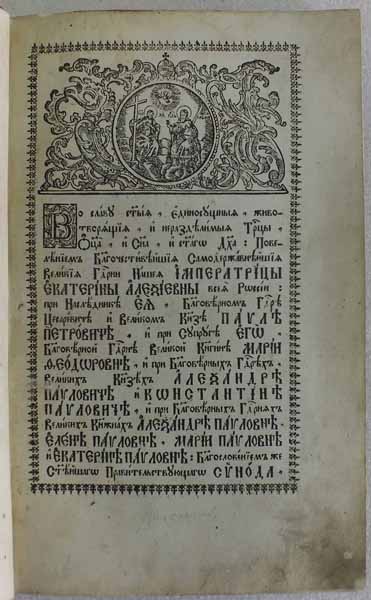 Во славу ст҃ыѧ, єдиносущныѧ, живо-
творѧщїѧ, и нераздѣлимыѧ Трⷪ҇цы
Ѻ҆ц҃а, и Сн҃а, и ст҃агѡ Дх҃а: Пове-
лѣнїемъ Бл҃гочестивѣйшїѧ Самодержавнѣйшїѧ
Великїѧ Гдⷭ҇рни Нашеѧ ІМПЕРАТРИЦЫ
ЕКАТЕРІНЫ АЛЕѮІЕВНЫ всеѧ Рѡссіи:
при Наслѣдникѣ ЕѦ, Бл҃говѣрномъ Гдⷭ҇рѣ
Цесаревичѣ и Великомъ Кн҃зѣ ПАѴЛѢ
ПЕТРОВИЧѢ, и при Супругѣ ЕГѠ,
Бл҃говѣрной Гдⷭ҇рнѣ Великой Кн҃гинѣ МАРІИ
ѲЕОДѠРОВНѢ, и при Бл҃говѣрныхъ Гдⷭ҇рѣхъ,
Великихъ Кн҃зѣхъ АЛЕѮАНДРѢ
ПАѴЛОВИЧѢ и КѠНСТАНТІНѢ
ПАѴЛОВИЧѢ, и при Бл҃говѣрныхъ Гдⷭ҇рнѧхъ
Великихъ Кнѧжнахъ АЛЕѮАНДРѢ ПАѴЛОВНѢ,
ЕЛЕНѢ ПАѴЛОВНѢ, МАРІИ ПАѴЛОВНѢ
и ЕКАТЕРІНѢ ПАѴЛОВНѢ: Бл҃гословенїемъ же
Ст҃ѣйшагѡ Правительствующагѡ СѴНОДА.